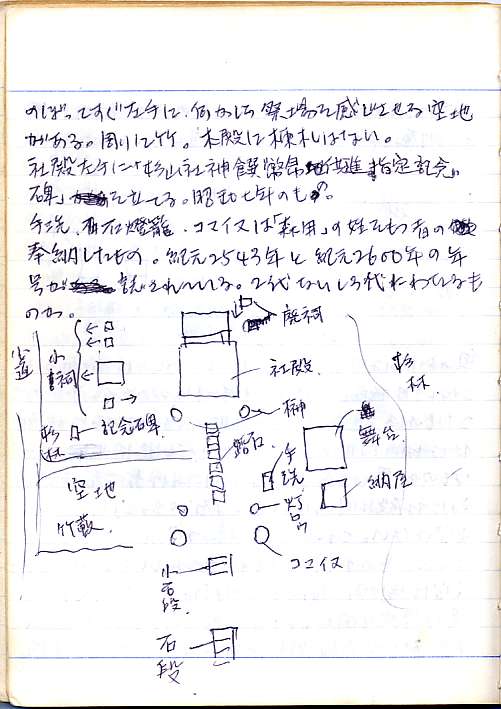 のぼってすぐ左手に、何かしら祭場を感じさせる空地
がある。周りに竹。木殿に棟札はない。
社殿左手に「杉山社神饌幣帛 供進指定記念
碑」 が立ってる。昭和七年のもの。
手洗、 石燈籠、コマイヌは「森田」の姓をもつ者の
奉納したもの。紀元2543年と紀元2600年の年
号が 記されている。2代ないし3代にわたるも
のか。
廃祠
小道
小祠
社殿
杉林
榊
記念碑
杉林
踏石
舞台
手洗
空地
納屋
竹藪
灯ロウ
コマイヌ
小石段
石段